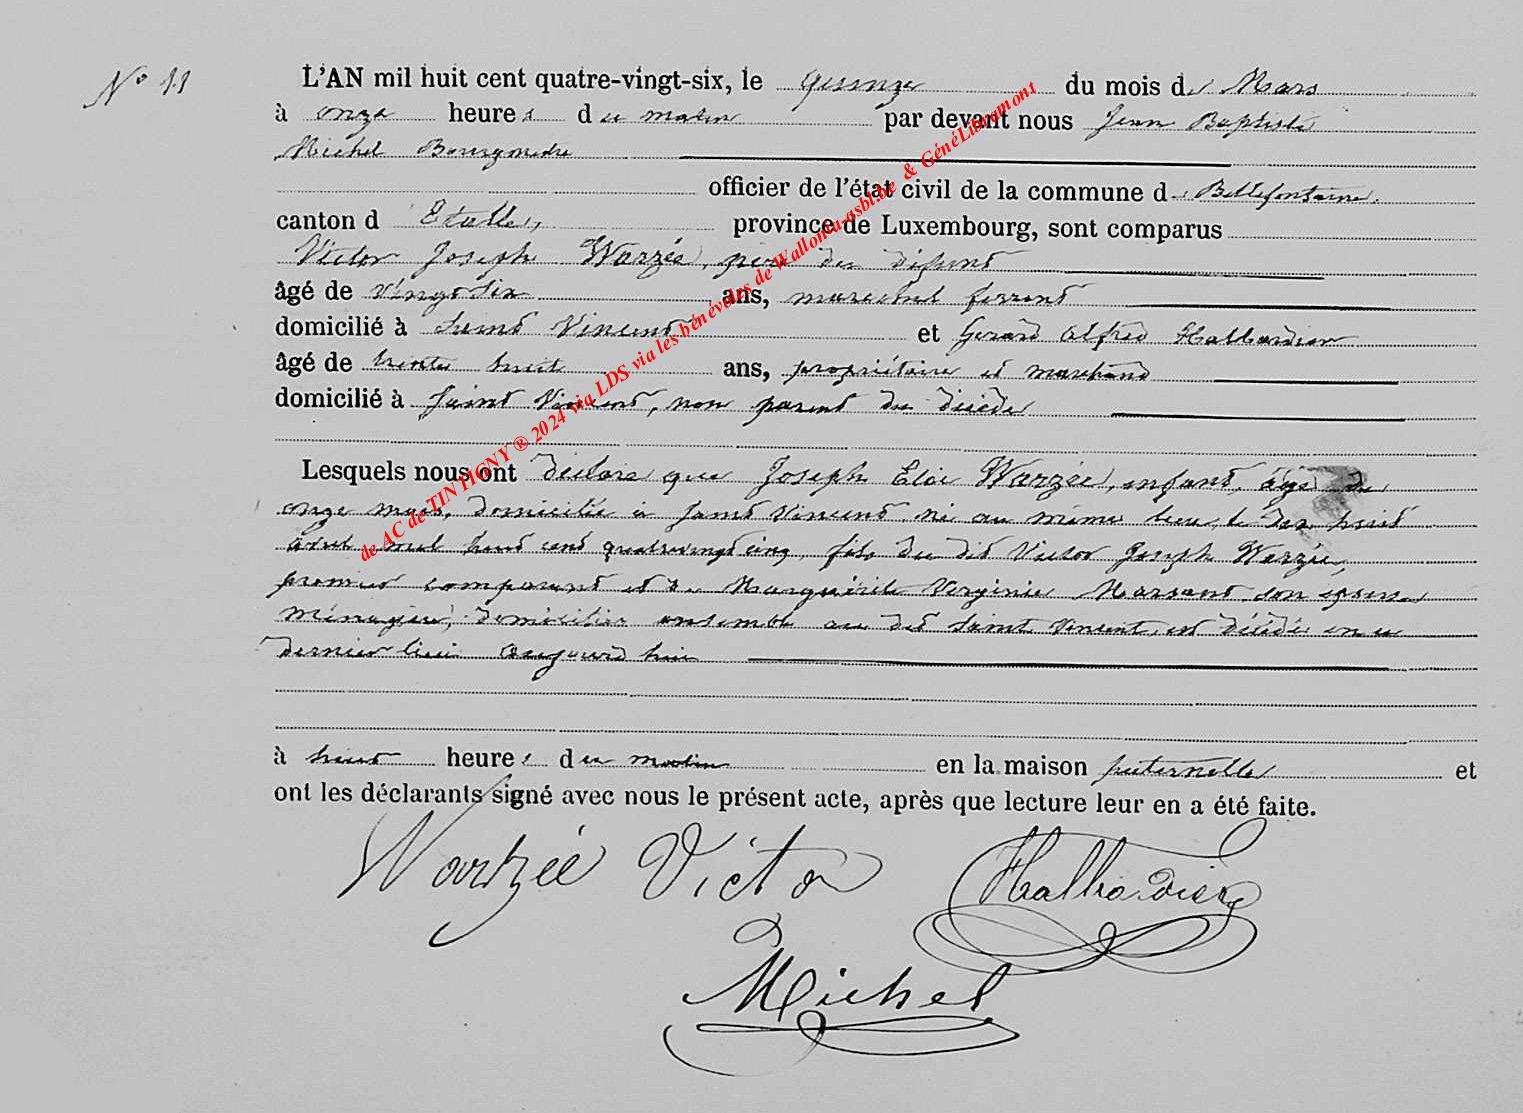 N° 11
L'AN mil huit cent quatre-vingt-six, le quinze du mois de Mars
à onze heures du matin par devant nous Jean Baptiste
Michel Bourgmestre
officier de l'état civil de la commune de Bellefontaine
canton d'Etalle, province de Luxembourg, sont comparus
Victor Joseph Warzée, père du défunt
âgé de vingt six ans, marechal ferrant
domicilié à Saint Vincent et Gerard Alfred Halbardier
âgé de trente huit ans, propriétaire et marchand
domicilié à Saint Vincent, non parent du décédé
Lesquels nous ont déclaré que Joseph Eloi Warzée, enfant, âgé de
onze mois, domicilié à Saint Vincent, né au même lieu le dix huit
avril mil huit cent quatrevingt cinq, fils du dit Victor Joseph Warzée,
premier comparant et de Marguérite Virginie Marsant son épouse
ménagère, domiciliés ensemble au dit Saint Vincent, est décédé en ce
dernier lieu aujourd'hui
à huit heures du matin en la maison paternelle et
ont les déclarants signé avec nous le présent acte, après que lecture leur en a été faite.
Warzée Victor Halbardier
Michel
de AC de TINTIGNY ® 2024 via LDS via les bénévoles de Wallonia-asbl.be & GénéLibramont